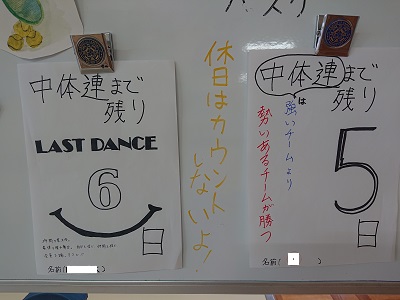 中体連まで
残り
LAST DANCE
6
日
名前(
休日はカウント
しないよ!
中体連まで
残り
は
強いチームより
勢いあるチームが勝つ
5
日
名前(  )